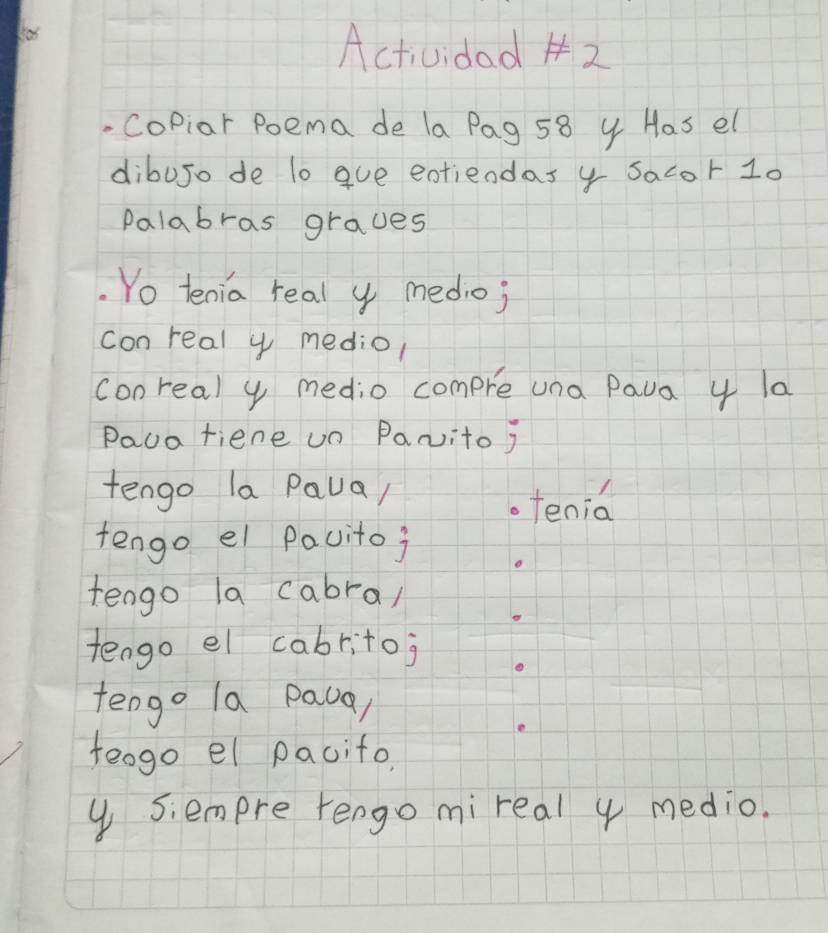 Actividad # 2
. Copiar Poema de la Pag 58 y Has el
dibujo de lo que entiendas y Sacar 10
Palabras graves
. Yo tenía real y medio;
con real y medio,
con real y medio compré una Pava y la
Pava tiene un Pavito;
tengo la Pava,
. tenía
tengo el Pavito;
.
tengo la cabra,
.
tengo el cabrito;
.
tengo la pava,
.
tengo el pavito.
y siempre tengo mi real y medio.